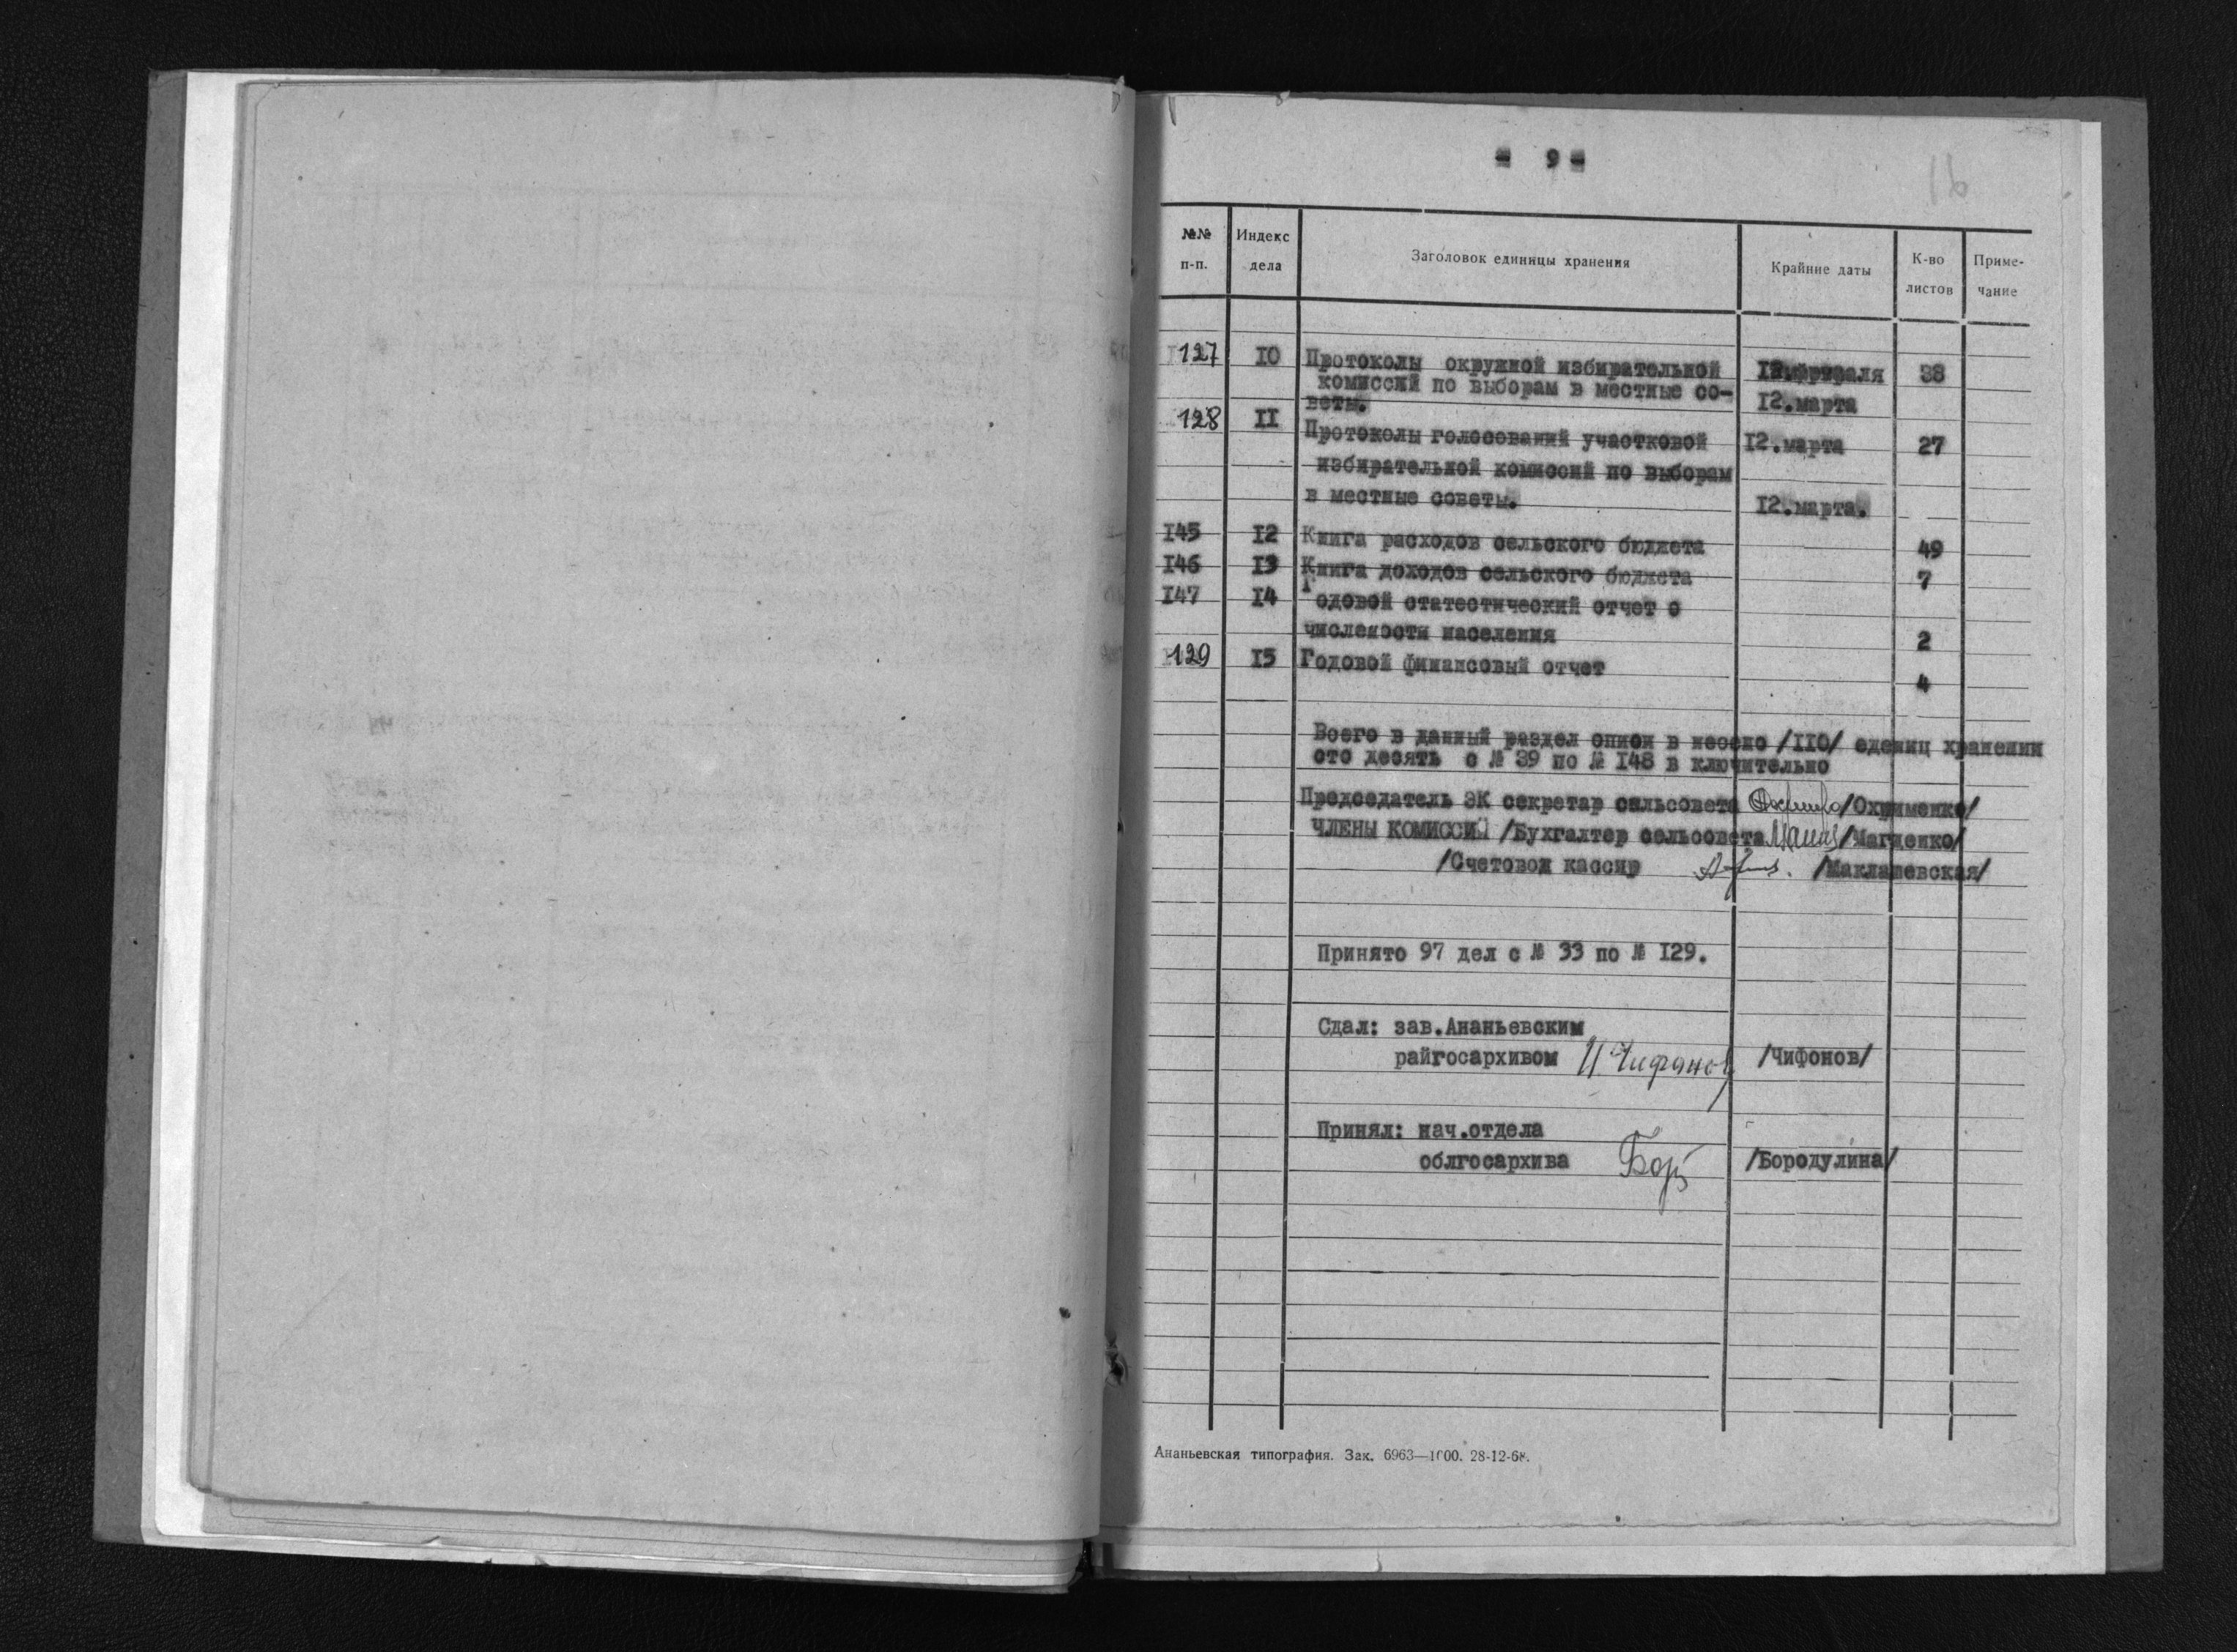 - 9 -
16
№№ п-п.
Индекс дела
Заголовок единицы хранения
Крайние даты
К-во листов
Приме-чание
127 10 Протоколы окружной избирательной февраля 38
комиссий по выборам в местные со- 12.марта
веты.
128 11 Протоколы голосований участковой 12.марта 27
избирательной комиссий по выборам
в местные советы. 12.марта.
145 12 Книга расходов сельского бюджета 49
146 13 Книга доходов сельского бюджета 7
147 14 Годовой статестический отчет о
числености населения 2
129 15 Годовой финансовый отчет 4
Всего в данный раздел описи в несено /110/ едениц хранении
сто десять с № 39 по № 148 в ключительно
Председатель ЭК секретар сельсовета /Охрименко/
ЧЛЕНЫ КОМИССИЙ /Бухгалтер сельсовета /Магденко/
/Счетовод кассир /Маклашевская/
Принято 97 дел с № 33 по № 129.
Сдал: зав.Ананьевским
райгосархивом И Чифонов /Чифонов/
Принял: нач.отдела
облгосархива Бор /Бородулина/
Ананьевская типография. Зак. 6963—1000. 28-12-68.